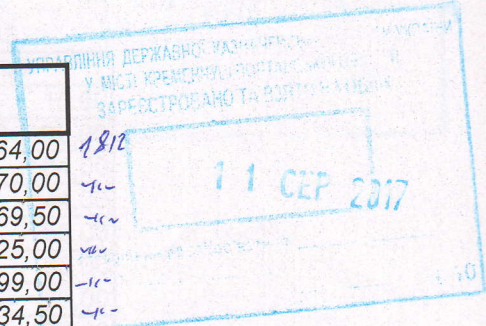 УПРАВЛІННЯ ДЕРЖАВНОЇ КАЗНАЧЕЙСЬКОЇ
У МІСТІ КРЕМЕНЧУЦІ ПОЛТАВСЬКОЇ
ЗАРЕЄСТРОВАНО ТА ВЗЯТО НА ОБЛІК
64,00 1812
70,00 -"-
11 СЕР 2017
69,50 -"-
25,00 -"-
99,00 -"-
34,50 -"-